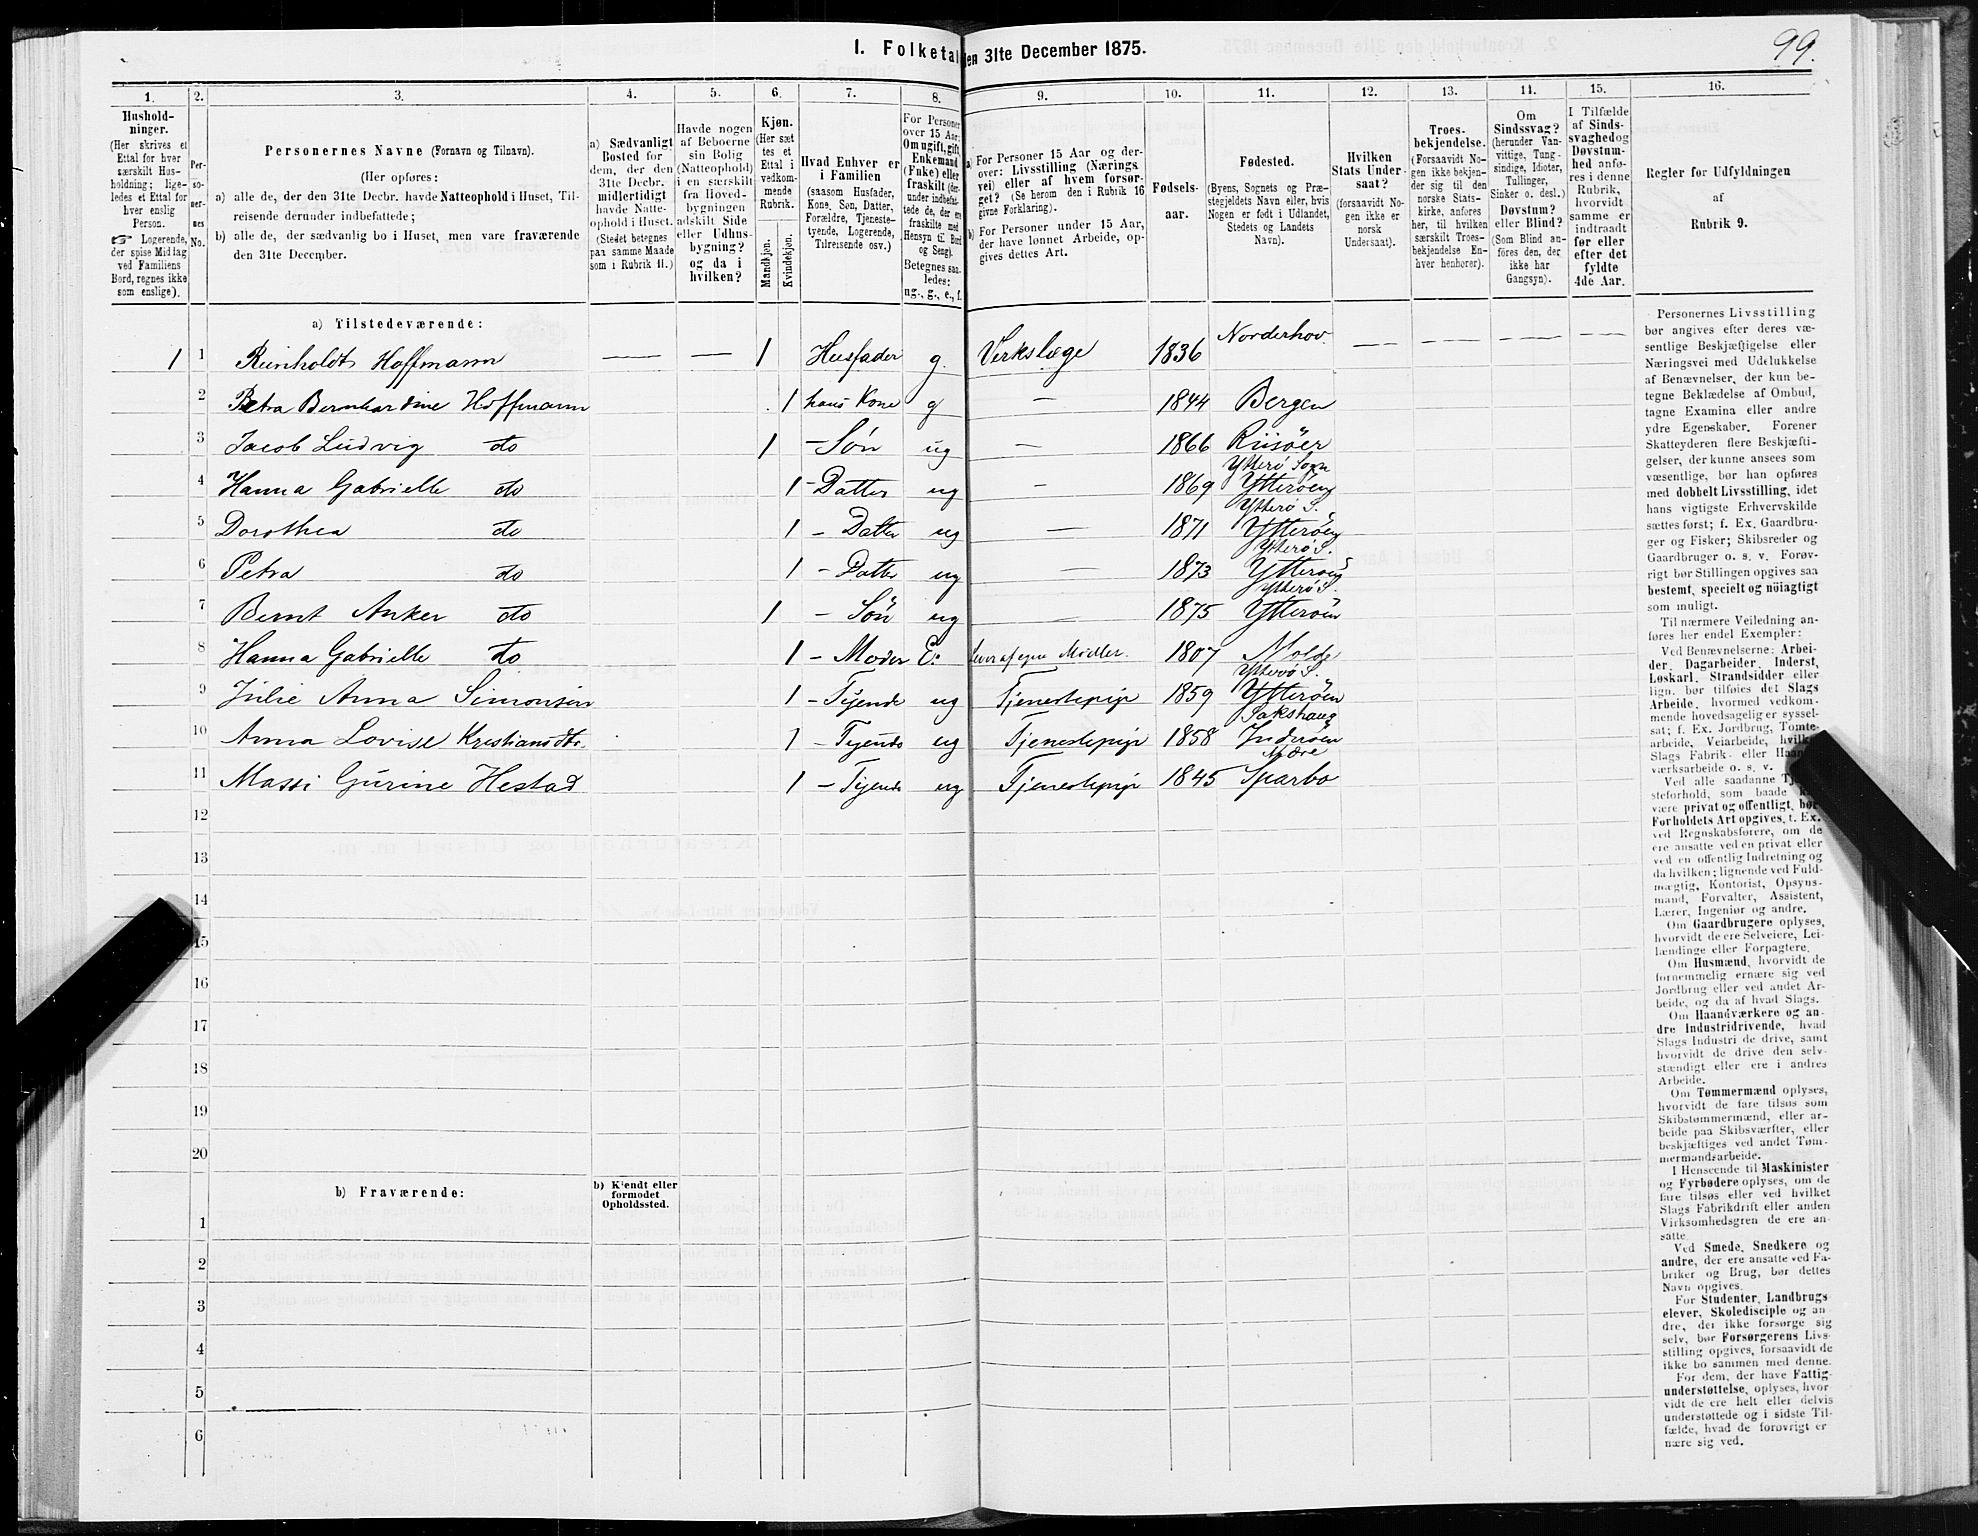 99.
1. Folketal
en 31te December 1875.
1. 2. 3. 4. 5. 6. 7. 8. 9. 10. 11. 12. 13. 14. 15. 16.
Hushold-
ninger.
(Her skrives et
Ettal for hver
særskilt Hus-
holdning; lige-
ledes et Ettal for
hver enslig
Person.
☞ Logerende,
der spise Middag
ved Familiens
Bord, regnes ikke
som enslige).
Per-
so-
ner-
nes
No.
Personernes Navne (Fornavn og Tilnavn).
(Her opføres:
a) alle de, der den 31te Decbr. havde Natteophold i Huset, Til-
reisende derunder indbefattede;
b) alle de, der sædvanlig bo i Huset, men vare fraværende
den 31te December.
a) Sædvanligt
Bosted for
dem, der den
31te Decbr.
midlertidigt
havde Natte-
ophold i Huset.
(Stedet betegnes
paa samme Maade
som i Rubrik 11.)
Havde nogen
af Beboerne
sin Bolig
(Natteophold)
i en særskilt
fra Hoved-
bygningen
adskilt Side
eller Udhus-
bygning?
og da i
hvilken?
Kjøn.
(Her sæt
tes et
Ettal i
vedkom-
mende
Rubrik.
Mandkjøn.
Kvindekjøn.
Hvad Enhver er
i Familien
(saasom Husfader,
Kone, Søn, Datter,
Forældre, Tjeneste-
tyende, Logerende,
Tilreisende osv.)
For Personer
over 15 Aar:
Om ugift, gift,
Enkemand
(Enke) eller
fraskilt (der-
under indbefat-
tede de, der ere
fraskilte med
Hensyn til Bord
og Seng).
Betegnes saa-
ledes:
ug., g., e., f.
a) For Personer 15 Aar og der-
over: Livsstilling (Nærings
vei) eller af hvem forsør-
get? (Se herom den i Rubrik 16
givne Forklaring).
b) For Personer under 15 Aar,
der have lønnet Arbeide, op-
gives dettes Art.
Fødsels-
aar.
Fødested.
(Byens, Sognets og Præ-
stegjeldets Navn eller, hvis
Nogen er født i Udlandet,
Stedets og Landets
Navn).
Hvilken
Stats Under-
saat?
(forsaavidt No-
gen ikke er
norsk
Undersaat).
Troes-
bekjendelse.
(Forsaavidt No-
gen ikke bekjen-
der sig til den
norske Stats-
kirke, anføres
her, til hvilken
særskilt Troes-
bekjendelse En-
hver henhører).
Om
Sindssvag?
(herunder Van-
vittige, Tung-
sindige, Idioter,
Tullinger,
Sinker o. desl.)
Døvstum?
eller Blind?
(Som Blind an-
føres den, der
ikke har
Gangsyn).
I Tilfælde
af Sinds-
svaghed og
Døvstum-
hed anfø-
res i denne
Rubrik,
hvorvidt
samme er
indtraadt
før eller
efter det
fyldte
4de Aar.
Regler for Udfyldningen
af
Rubrik 9.
a) Tilstedeværende:
1 1 Reinholdt Hoffmann — — 1 Husfader g. Verkslæge 1836 Norderhov — — — —
2 Petra Bernhardine Hoffmann 1 hans Kone g — 1844 Bergen
3 Jacob Ludvig do 1 — Søn ug — 1866 Riisöer
4 Hanna Gabrielle do 1 – Datter ug — 1869 Ytterø Sogn Ytterøen
5 Dorothea do 1 – Datter ug — 1871 Ytterø S. Ytterøen
6 Petra do 1 – Datter ug — 1873 Ytterø S. Ytterøen
7 Bernt Anker do 1 – Søn ug — 1875 Ytterø S. Ytterøen
8 Hanna Gabrielle do 1 – Moder E: Lever af egne Midler. 1807 Molde
9 Julie Anna Simonsen 1 – Tyende ug Tjenestepige 1859 Ytterø S. Ytterøen
10 Anna Lovise Kristiansdtr. 1 – Tyende ug Tjenestepige 1858 Sakshaug Inderøen
11 Massi Gurine Hestad 1 – Tyende ug Tjenestepige 1845 Mære Sparbo
12
13
14
15
16
17
18
19
20
b) Fraværende:
b) Kjendt eller
formodet
Opholdssted.
1
2
3
4
5
6
Personernes Livsstilling
bør angives efter deres væ-
sentlige Beskjæftigelse eller
Næringsvei med Udelukkelse
af Benævnelser, der kun be-
tegne Beklædelse af Ombud,
tagne Examina eller andre
ydre Egenskaber. Forener
Skatteyderen flere Beskjæfti-
gelser, der kunne ansees som
væsentlige, bør han opføres
med dobbelt Livsstilling, idet
hans vigtigste Erhvervskilde
sættes først; f. Ex. Gaardbru-
ger og Fisker; Skibsreder og
Gaardbruger o. s. v. Forøv-
rigt bør Stillingen opgives saa
bestemt, specielt og nöiagtigt
som muligt.
Til nærmere Veiledning an-
føres her endel Exempler:
Ved Benævnelserne: Arbei-
der, Dagarbeider, Inderst,
Løskarl, Strandsidder eller
lign. bør tilføies det Slags
Arbeide, hvormed vedkom-
mende hovedsagelig er syssel-
sat; f. Ex. Jordbrug, Tomte-
arbeide, Veiarbeide, hvilket
Slags Fabrik- eller Haand-
værksarbeide o. s. v.
Ved alle saadanne Tje-
steforhold, som baade
være privat og offentligt, bør
Forholdets Art opgives, t. Ex.
ved Regnskabsførere, om de
ere ansatte ved en privat eller
ved en offentlig Indretning og
da hvilken; lignende ved Fuld-
mægtig, Kontorist, Opsyns-
mand, Forvalter, Assistent,
Lærer, Ingeniør og andre.
Om Gaardbrugere oplyses,
hvorvidt de ere Selveiere, Lei-
lændinge eller Forpagtere.
Om Husmænd, hvorvidt de
fornemmelig ernære sig ved
Jordbrug eller ved andet Ar-
beide, og da af hvad Slags.
Om Haandværkere og an-
dre Industridrivende, hvad
Slags Industri de drive, samt
hvorvidt de drive den selv-
stændigt eller ere i andres
Arbeide.
Om Tømmermænd oplyses,
hvorvidt de fare tilsøs som
Skibstømmermænd, eller ar-
beide paa Skibsværfter, eller
beskjæftiges ved andet Tøm-
mermandsarbeide.
I Henseende til Maskinister
og Fyrbødere oplyses, om de
fare tilsøs eller ved hvilket
Slags Fabrikdrift eller anden
Virksomhedsgren de ere an-
satte.
Ved Smede, Snedkere og
andre, der ere ansatte ved Fa-
briker og Brug, bør dettes
Navn opgives.
For Studenter, Landbrugs-
elever, Skoledisciple og an-
dre, der ikke forsørge sig
selv, bør Forsørgerens Livs-
stilling opgives, forsaavidt de
ikke bo sammen med denne.
For dem, der have Fattig-
understøttelse, oplyses, hvor
vidt de ere helt eller delvis
understøttede og i sidste Til-
fælde, hvad de forøvrigt er
nære sig ved.